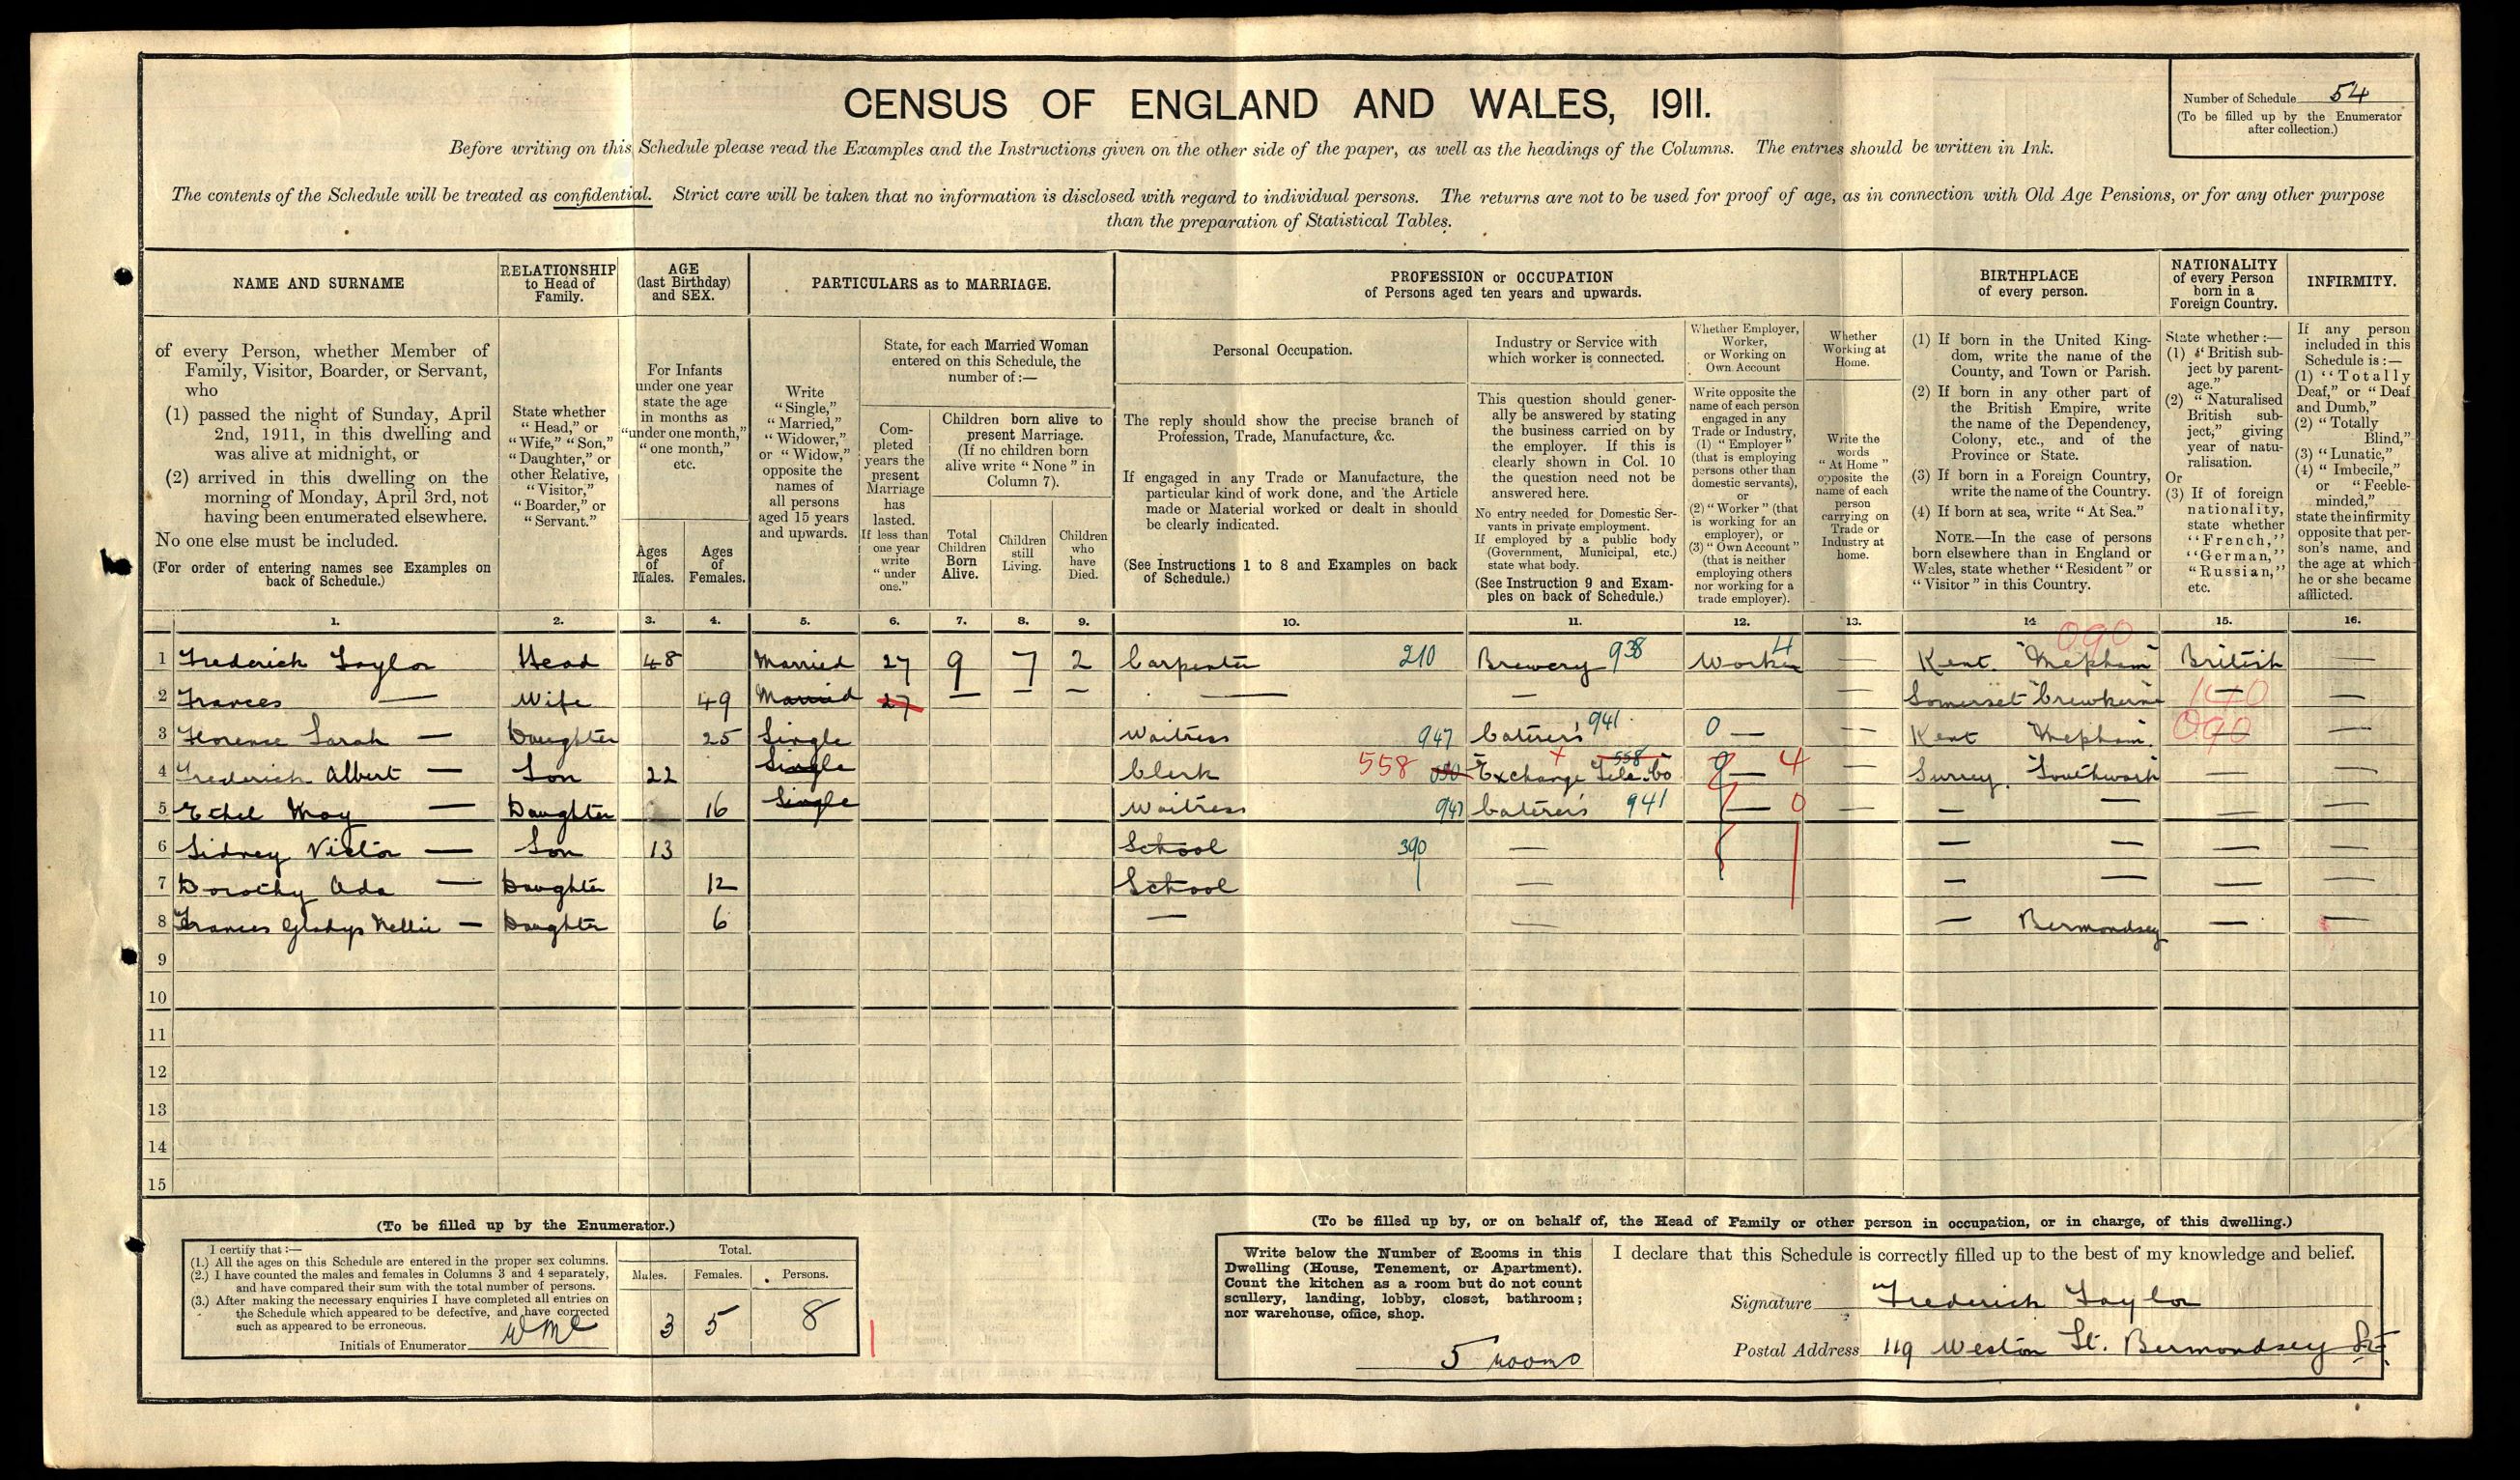 CENSUS OF ENGLAND AND WALES, 1911.
Number of Schedule 54
(To be filled up by the Enumerator
after collection.)
Before writing on this Schedule please read the Examples and the Instructions given on the other side of the paper, as well as the headings of the Columns. The entries should be written in Ink.
The contents of the Schedule will be treated as confidential. Strict care will be taken that no information is disclosed with regard to individual persons. The returns are not to be used for proof of age, as in connection with Old Age Pensions, or for any other purpose
than the preparation of Statistical Tables.
NAME AND SURNAME
of every Person, whether Member of
Family, Visitor, Boarder, or Servant,
who
(1) passed the night of Sunday, April
2nd, 1911, in this dwelling and
was alive at midnight, or
(2) arrived in this dwelling on the
morning of Monday, April 3rd, not
having been enumerated elsewhere.
No one else must be included.
(For order of entering names see Examples on
back of Schedule.)
RELATIONSHIP
to Head of
Family.
State whether
"Head," or
"Wife," "Son,"
"Daughter," or
other Relative,
"Visitor,"
"Boarder," or
"Servant."
AGE
(last Birthday)
and SEX.
For Infants
under one year
state the age
in months as
"under one month,"
"one month,"
etc.
Ages
of
Males.
Ages
of
Females.
PARTICULARS as to MARRIAGE.
Write
"Single,"
"Married,"
"Widower,"
or "Widow,"
opposite the
names of
all persons
aged 15 years
and upwards.
State, for each Married Woman
entered on this Schedule, the
number of:—
Com-
pleted
years the
present
Marriage
has
lasted.
If less than
one year
write
"under
one."
Children born alive to
present Marriage.
(If no children born
alive write "None" in
Column 7).
Total
Children
Born
Alive.
Children
still
Living.
Children
who
have
Died.
PROFESSION or OCCUPATION
of Persons aged ten years and upwards.
Personal Occupation.
The reply should show the precise branch of
Profession, Trade, Manufacture, &c.
If engaged in any Trade or Manufacture, the
particular kind of work done, and the Article
made or Material worked or dealt in should
be clearly indicated.
(See Instructions 1 to 8 and Examples on back
of Schedule.)
Industry or Service with
which worker is connected.
This question should gener-
ally be answered by stating
the business carried on by
the employer. If this is
clearly shown in Col. 10
the question need not be
answered here.
No entry needed for Domestic Ser-
vants in private employment.
If employed by a public body
(Government, Municipal, etc.)
state what body.
(See Instruction 9 and Exam-
ples on back of Schedule.)
Whether Employer,
Worker,
or Working on
Own Account
Write opposite the
name of each person
engaged in any
Trade or Industry,
(1) "Employer"
(that is employing
persons other than
domestic servants),
or
(2) "Worker" (that
is working for an
employer), or
(3) "Own Account"
(that is neither
employing others
nor working for a
trade employer).
Whether
Working at
Home.
Write the
words
"At Home"
opposite the
name of each
person
carrying on
Trade or
Industry at
home.
BIRTHPLACE
of every person.
(1) If born in the United King-
dom, write the name of the
County, and Town or Parish.
(2) If born in any other part of
the British Empire, write
the name of the Dependency,
Colony, etc., and of the
Province or State.
(3) If born in a Foreign Country,
write the name of the Country.
(4) If born at sea, write "At Sea."
NOTE.—In the case of persons
born elsewhere than in England or
Wales, state whether "Resident" or
"Visitor" in this Country.
NATIONALITY
of every Person
born in a
Foreign Country.
State whether:—
(1) "British sub-
ject by parent-
age."
(2) "Naturalised
British sub-
ject," giving
year of natu-
ralisation.
Or
(3) If of foreign
nationality,
state whether
"French,"
"German,"
"Russian,"
etc.
INFIRMITY.
If any person
included in this
Schedule is:—
(1) "Totally
Deaf," or "Deaf
and Dumb,"
(2) "Totally
Blind,"
(3) "Lunatic,"
(4) "Imbecile,"
or "Feeble-
minded,"
state the infirmity
opposite that per-
son's name, and
the age at which
he or she became
afflicted.
1. 2. 3. 4. 5. 6. 7. 8. 9. 10. 11. 12. 13. 14 15. 16.
1 Frederick Taylor Head 48 Married 27 9 7 2 Carpenter 210 Brewery 938 Worker 4 — Kent "Mepham" 090 British —
2 Frances — Wife 49 Married 27 — — — — — — Somerset "Crewkerne — 140 —
3 Florence Sarah — Daughter 25 Single Waitress 947 Caterers 941 0 — — Kent Mepham. — 090 —
4 Frederick Albert — Son 22 Single Clerk 558 Exchange Tele. Co 558 — 4 — Surrey. Southwark — —
5 Ethel May — Daughter 16 Single Waitress 947 Caterers 941 — 0 — — — — —
6 Sidney Victor — Son 13 School 390 — — — — —
7 Dorothy Ada — Daughter 12 School — — — — —
8 Frances Gladys Nellie — Daughter 6 — — — Bermondsey — —
9
10
11
12
13
14
15
(To be filled up by the Enumerator.)
I certify that:—
(1.) All the ages on this Schedule are entered in the proper sex columns.
(2.) I have counted the males and females in Columns 3 and 4 separately,
and have compared their sum with the total number of persons.
(3.) After making the necessary enquiries I have completed all entries on
the Schedule which appeared to be defective, and have corrected
such as appeared to be erroneous.
Initials of Enumerator WMC
Total.
Males. Females. Persons.
3 5 8
(To be filled up by, or on behalf of, the Head of Family or other person in occupation, or in charge, of this dwelling.)
Write below the Number of Rooms in this
Dwelling (House, Tenement, or Apartment).
Count the kitchen as a room but do not count
scullery, landing, lobby, closet, bathroom;
nor warehouse, office, shop.
5 rooms
I declare that this Schedule is correctly filled up to the best of my knowledge and belief.
Signature Frederick Taylor
Postal Address 119 Weston St. Bermondsey